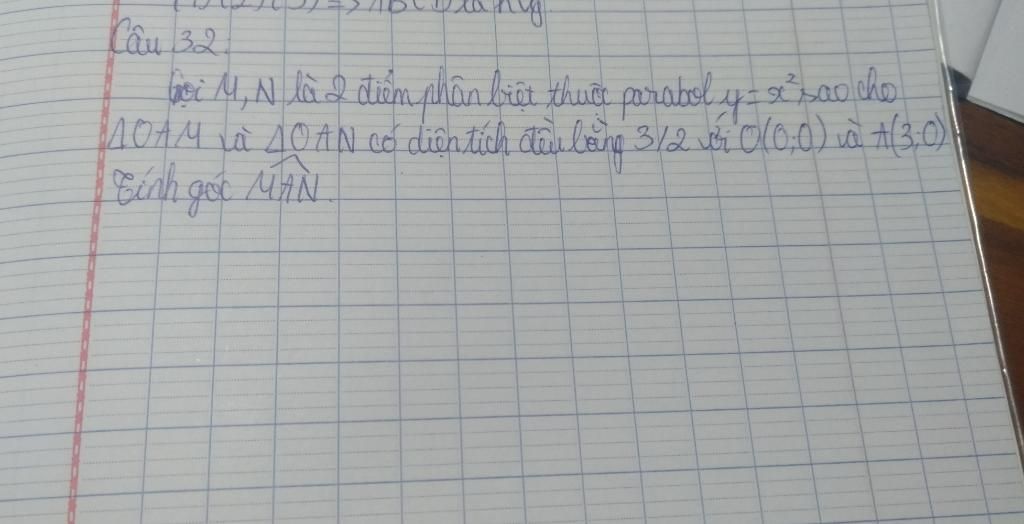 Câu 32.
Gọi M, N là 2 điểm phân biệt thuộc parabol y = x² sao cho
ΔOAM và ΔOAN có diện tích đều bằng 3/2 với O(0;0) và A(3;0)
Tính góc MAN.